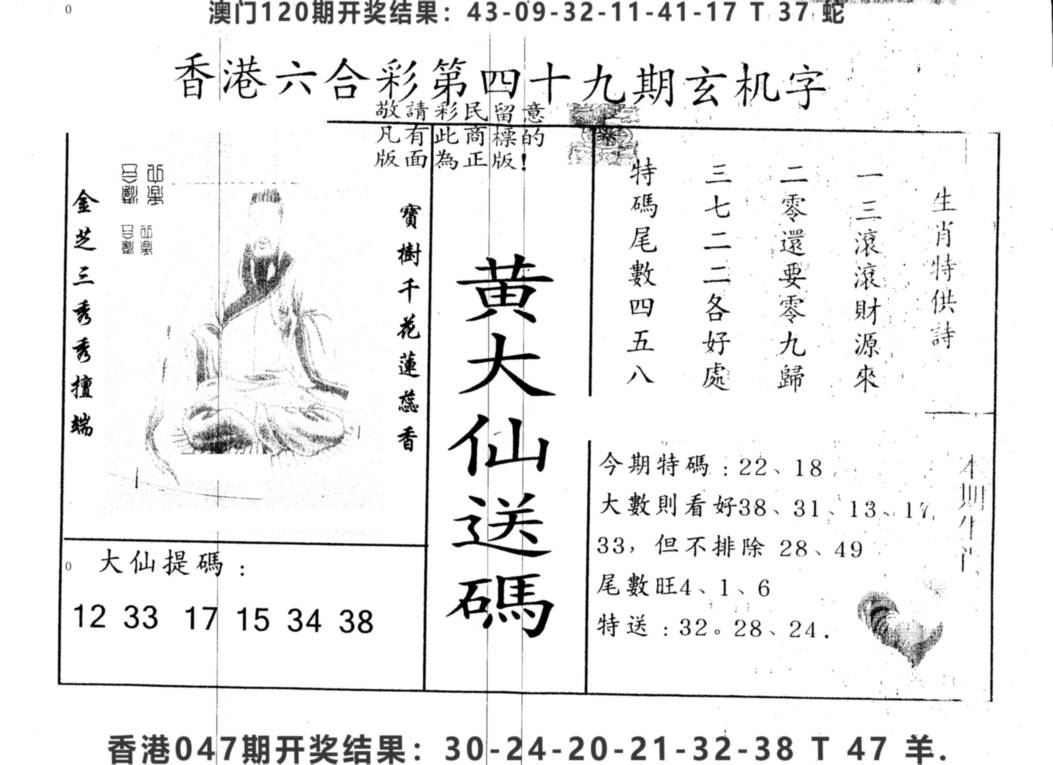 澳门120期开奖结果：43-09-32-11-41-17 T 37 蛇
香港六合彩第四十九期玄机字
敬請彩民留意
凡有此商標的
版面為正版!
生肖特供詩
一三滾滾財源來
二零還要零九歸
三七二二各好處
特碼尾數四五八
寶樹千花蓮蕊香
金芝三秀秀擅端
黄大仙送碼
今期特碼：22、18
大數則看好38、31、13、17
33，但不排除 28、49
尾數旺4、1、6
特送：32。28、24.
本期生肖
大仙提碼：
12 33 17 15 34 38
香港047期开奖结果：30-24-20-21-32-38 T 47 羊.